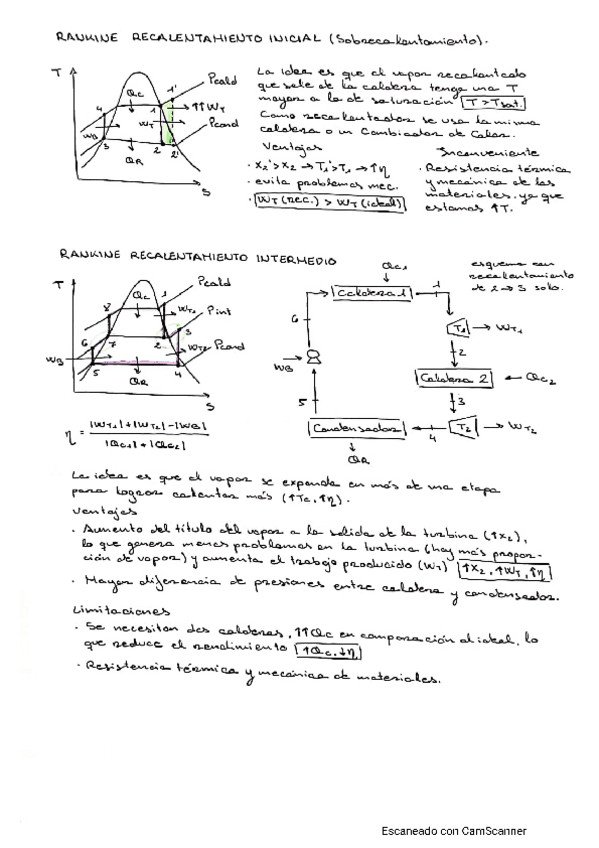 RANKINE RECALENTAMIENTO INICIAL (Sobrecalentamiento).
T
Qc
1'
Pcald
↑↑WT
4
1
WT
Pcond
WB
3
2
2'
QR
S
La idea es que el vapor recalentado
que sale de la caldera tenga una T
mayor a la de saturación T > Tsat.
Como recalentador se usa la misma
caldera o un Cambiador de Calor.
Ventajas
· X2' > X2 → T1' > T1 → ↑η
· evita problemas mec.
· WT (rec.) > WT (ideal)
Inconveniente
· Resistencia térmica
y mecánica de los
materiales, ya que
estamos ↑T.
RANKINE RECALENTAMIENTO INTERMEDIO
T
Qc
1
Pcald
8
WT1
Pint
3
6
7
2
WT2
Pcond
WB
5
QR
4
S
η = |WT1|+|WT2|-|WB| / |Qc1|+|Qc2|
Qc1
Caldera 1
1
6
T1
WT1
2
WB
Caldera 2
Qc2
5
3
Condensador
4
T2
WT2
QR
esquema con
recalentamiento
de 2→3 solo.
La idea es que el vapor se expanda en más de una etapa
para lograr calentar más (↑Tc, ↑η).
Ventajas
· Aumento del título del vapor a la salida de la turbina (↑X2),
lo que genera menos problemas en la turbina (hay más propor-
ción de vapor) y aumenta el trabajo producido (WT) ↑X2, ↑WT, ↑η
· Mayor diferencia de presiones entre caldera y condensador.
Limitaciones
· Se necesitan dos calderas, ↑↑Qc en comparación al ideal, lo
que reduce el rendimiento ↑Qc, ↓η
· Resistencia térmica y mecánica de materiales.
Escaneado con CamScanner